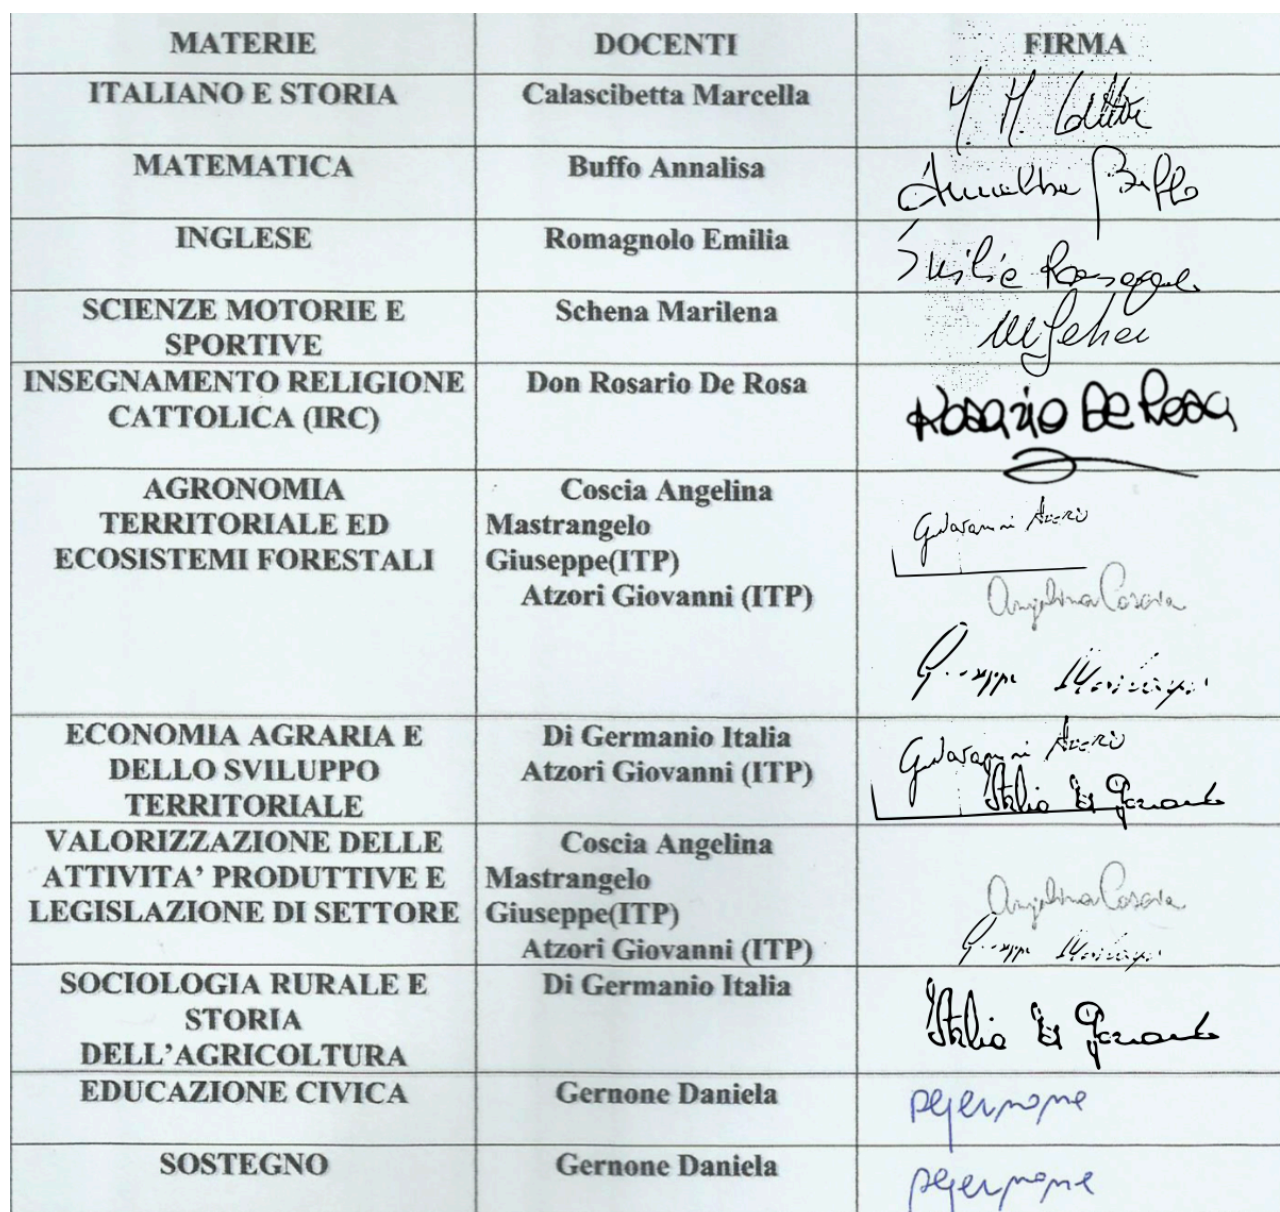 MATERIE DOCENTI FIRMA
ITALIANO E STORIA Calascibetta Marcella
MATEMATICA Buffo Annalisa Annalisa Buffo
INGLESE Romagnolo Emilia Emilia
SCIENZE MOTORIE E SPORTIVE Schena Marilena
INSEGNAMENTO RELIGIONE CATTOLICA (IRC) Don Rosario De Rosa Rosario De Rosa
AGRONOMIA
TERRITORIALE ED
ECOSISTEMI FORESTALI
Coscia Angelina
Mastrangelo
Giuseppe(ITP)
Atzori Giovanni (ITP)
Angelina Coscia
ECONOMIA AGRARIA E
DELLO SVILUPPO
TERRITORIALE
Di Germanio Italia
Atzori Giovanni (ITP)
Italia Di Germanio
VALORIZZAZIONE DELLE
ATTIVITA' PRODUTTIVE E
LEGISLAZIONE DI SETTORE
Coscia Angelina
Mastrangelo
Giuseppe(ITP)
Atzori Giovanni (ITP)
Angelina Coscia
SOCIOLOGIA RURALE E
STORIA
DELL'AGRICOLTURA
Di Germanio Italia
Italia Di Germanio
EDUCAZIONE CIVICA Gernone Daniela
SOSTEGNO Gernone Daniela